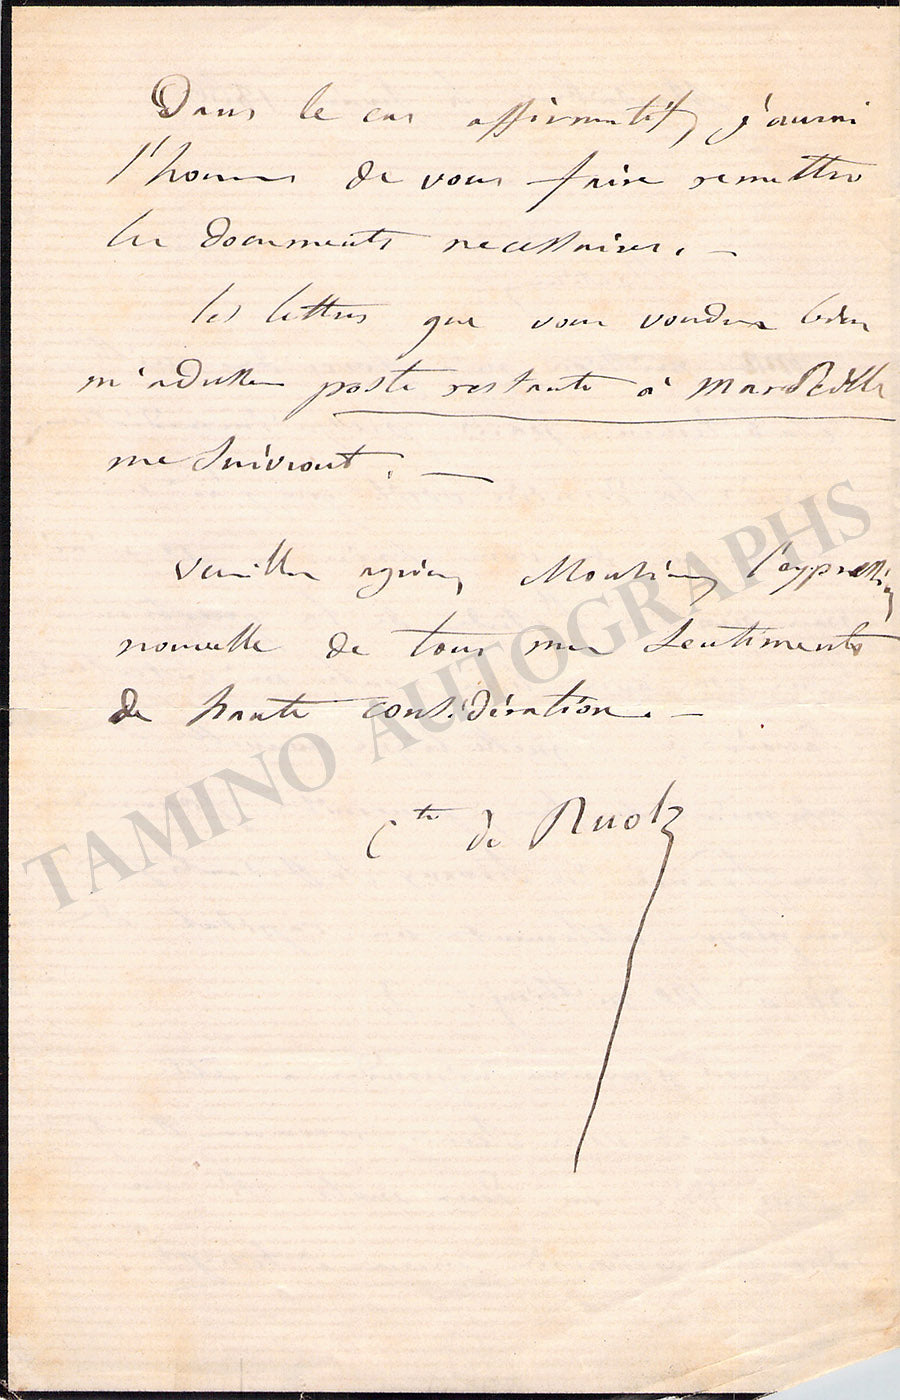 Dans le cas affirmatif, j'aurai
l'honneur de vous faire remettre
les documents necessaires. —
les lettres que vous voudrez bien
m'adresser poste restante à Marseille
me suivront. —
Veuillez agréer, Monsieur, l'expression
nouvelle de tous mes sentiments
de haute considération. —
Cte de Ruolz
TAMINO AUTOGRAPHS